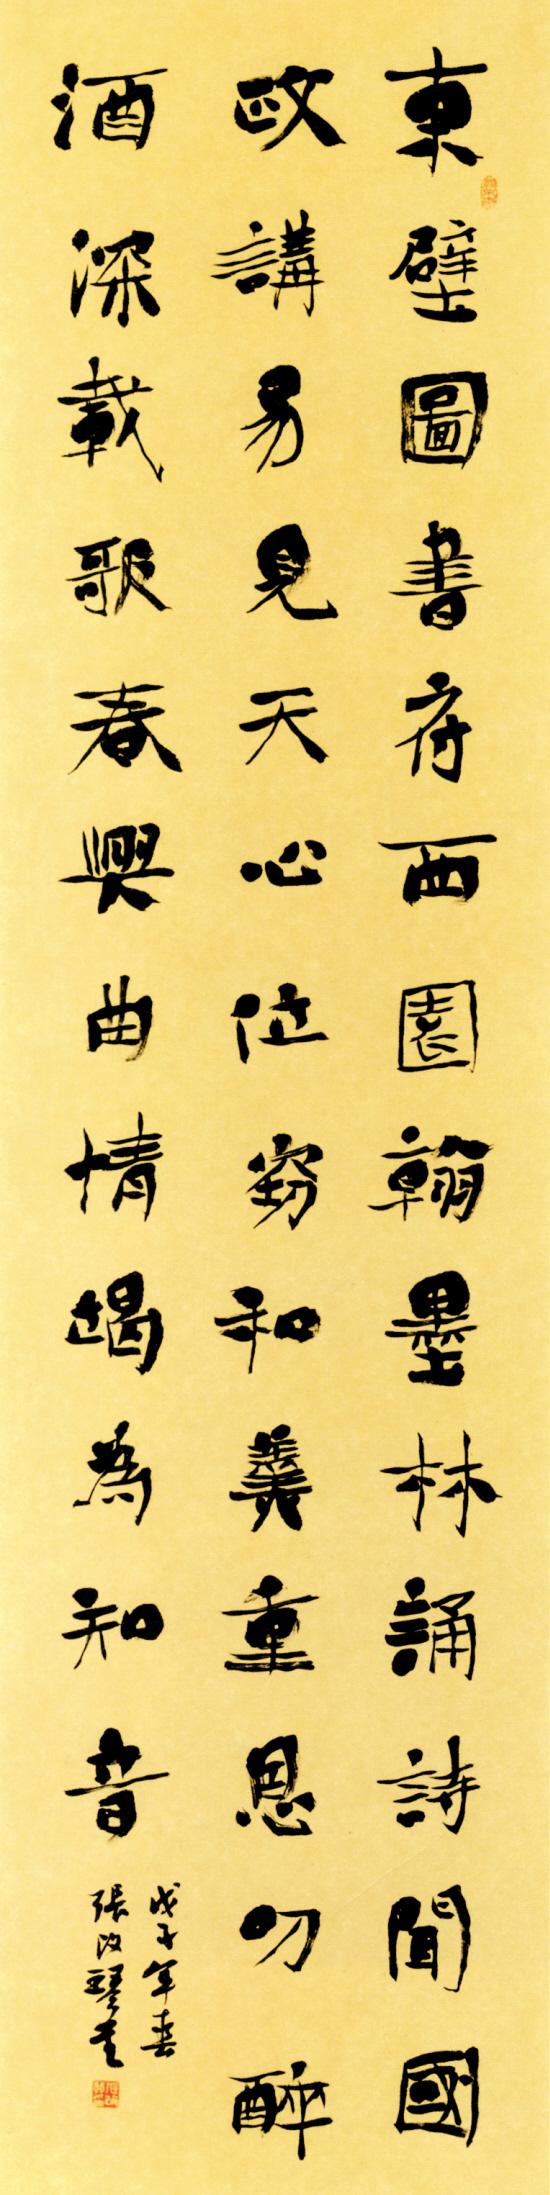 東壁圖書府西園翰墨林誦詩聞國
政講易見天心位窃和羹重恩叨醉
酒深載歌春興曲情竭為知音
戊子年春
張改琴書